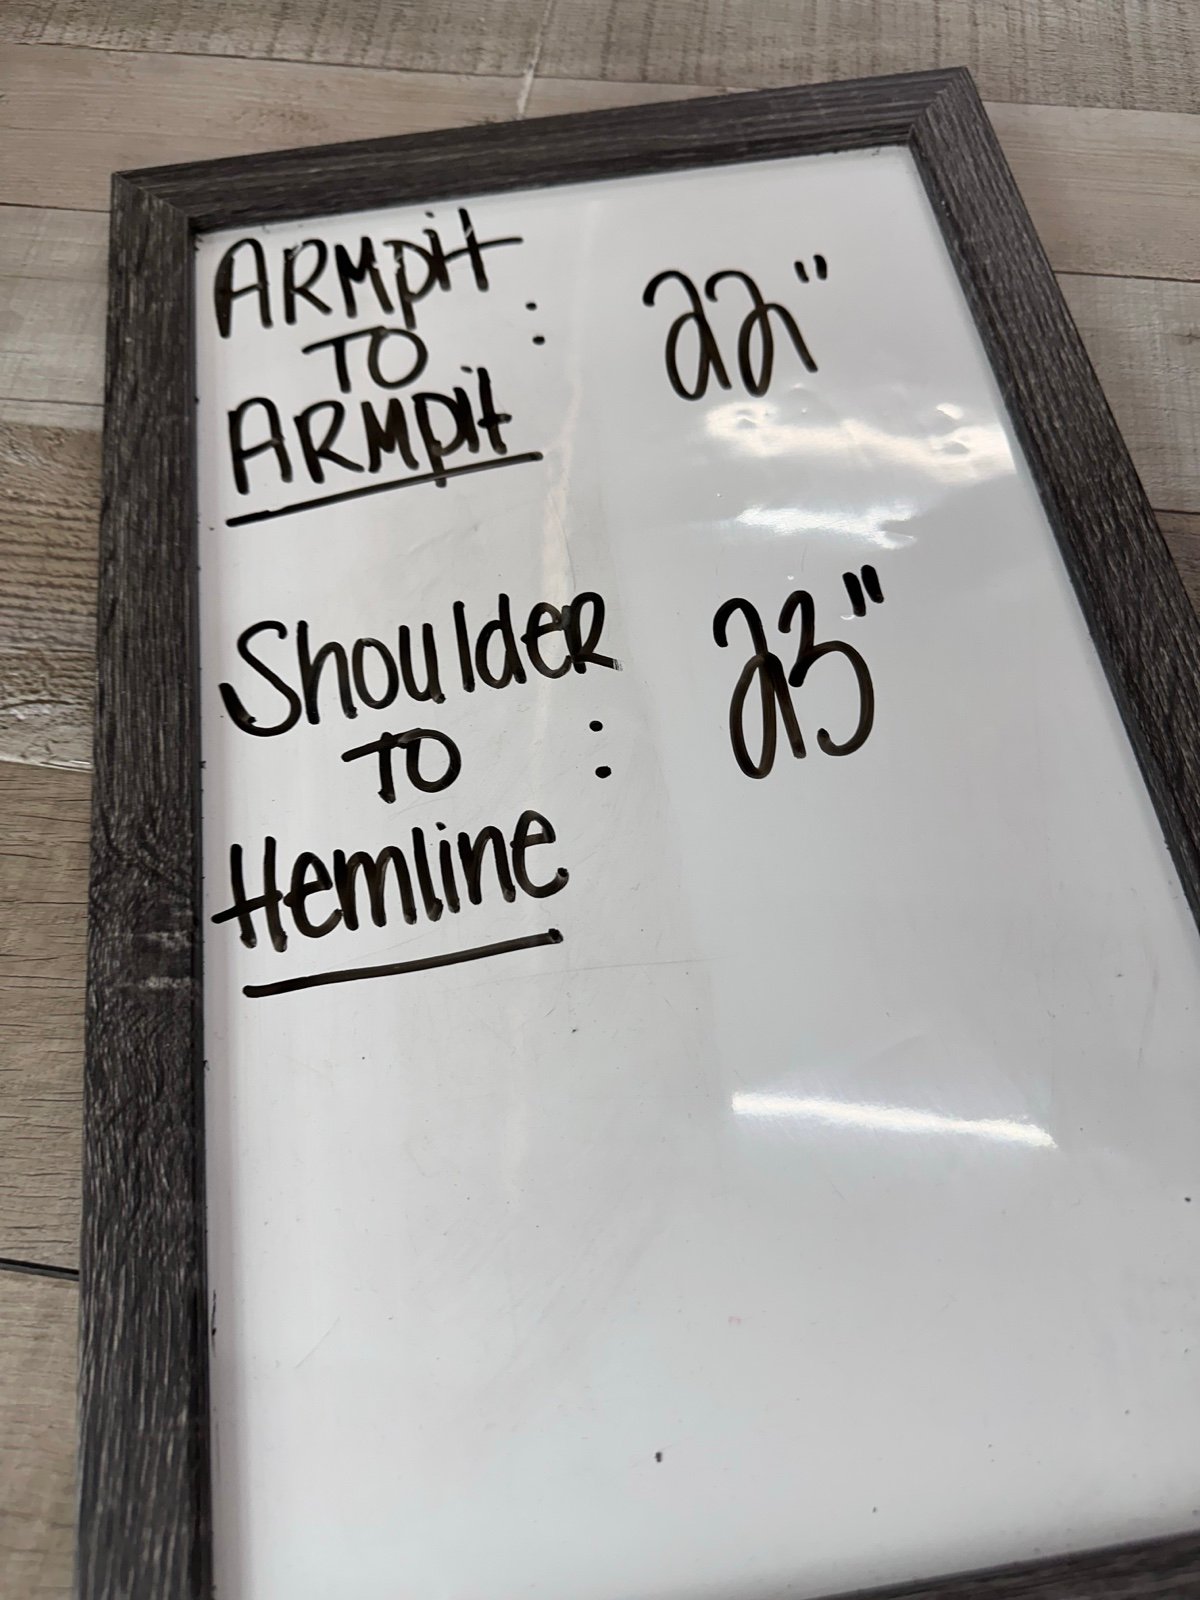 ARMpit
TO : 22"
ARMpit
ShouldeR
TO : 23"
Hemline